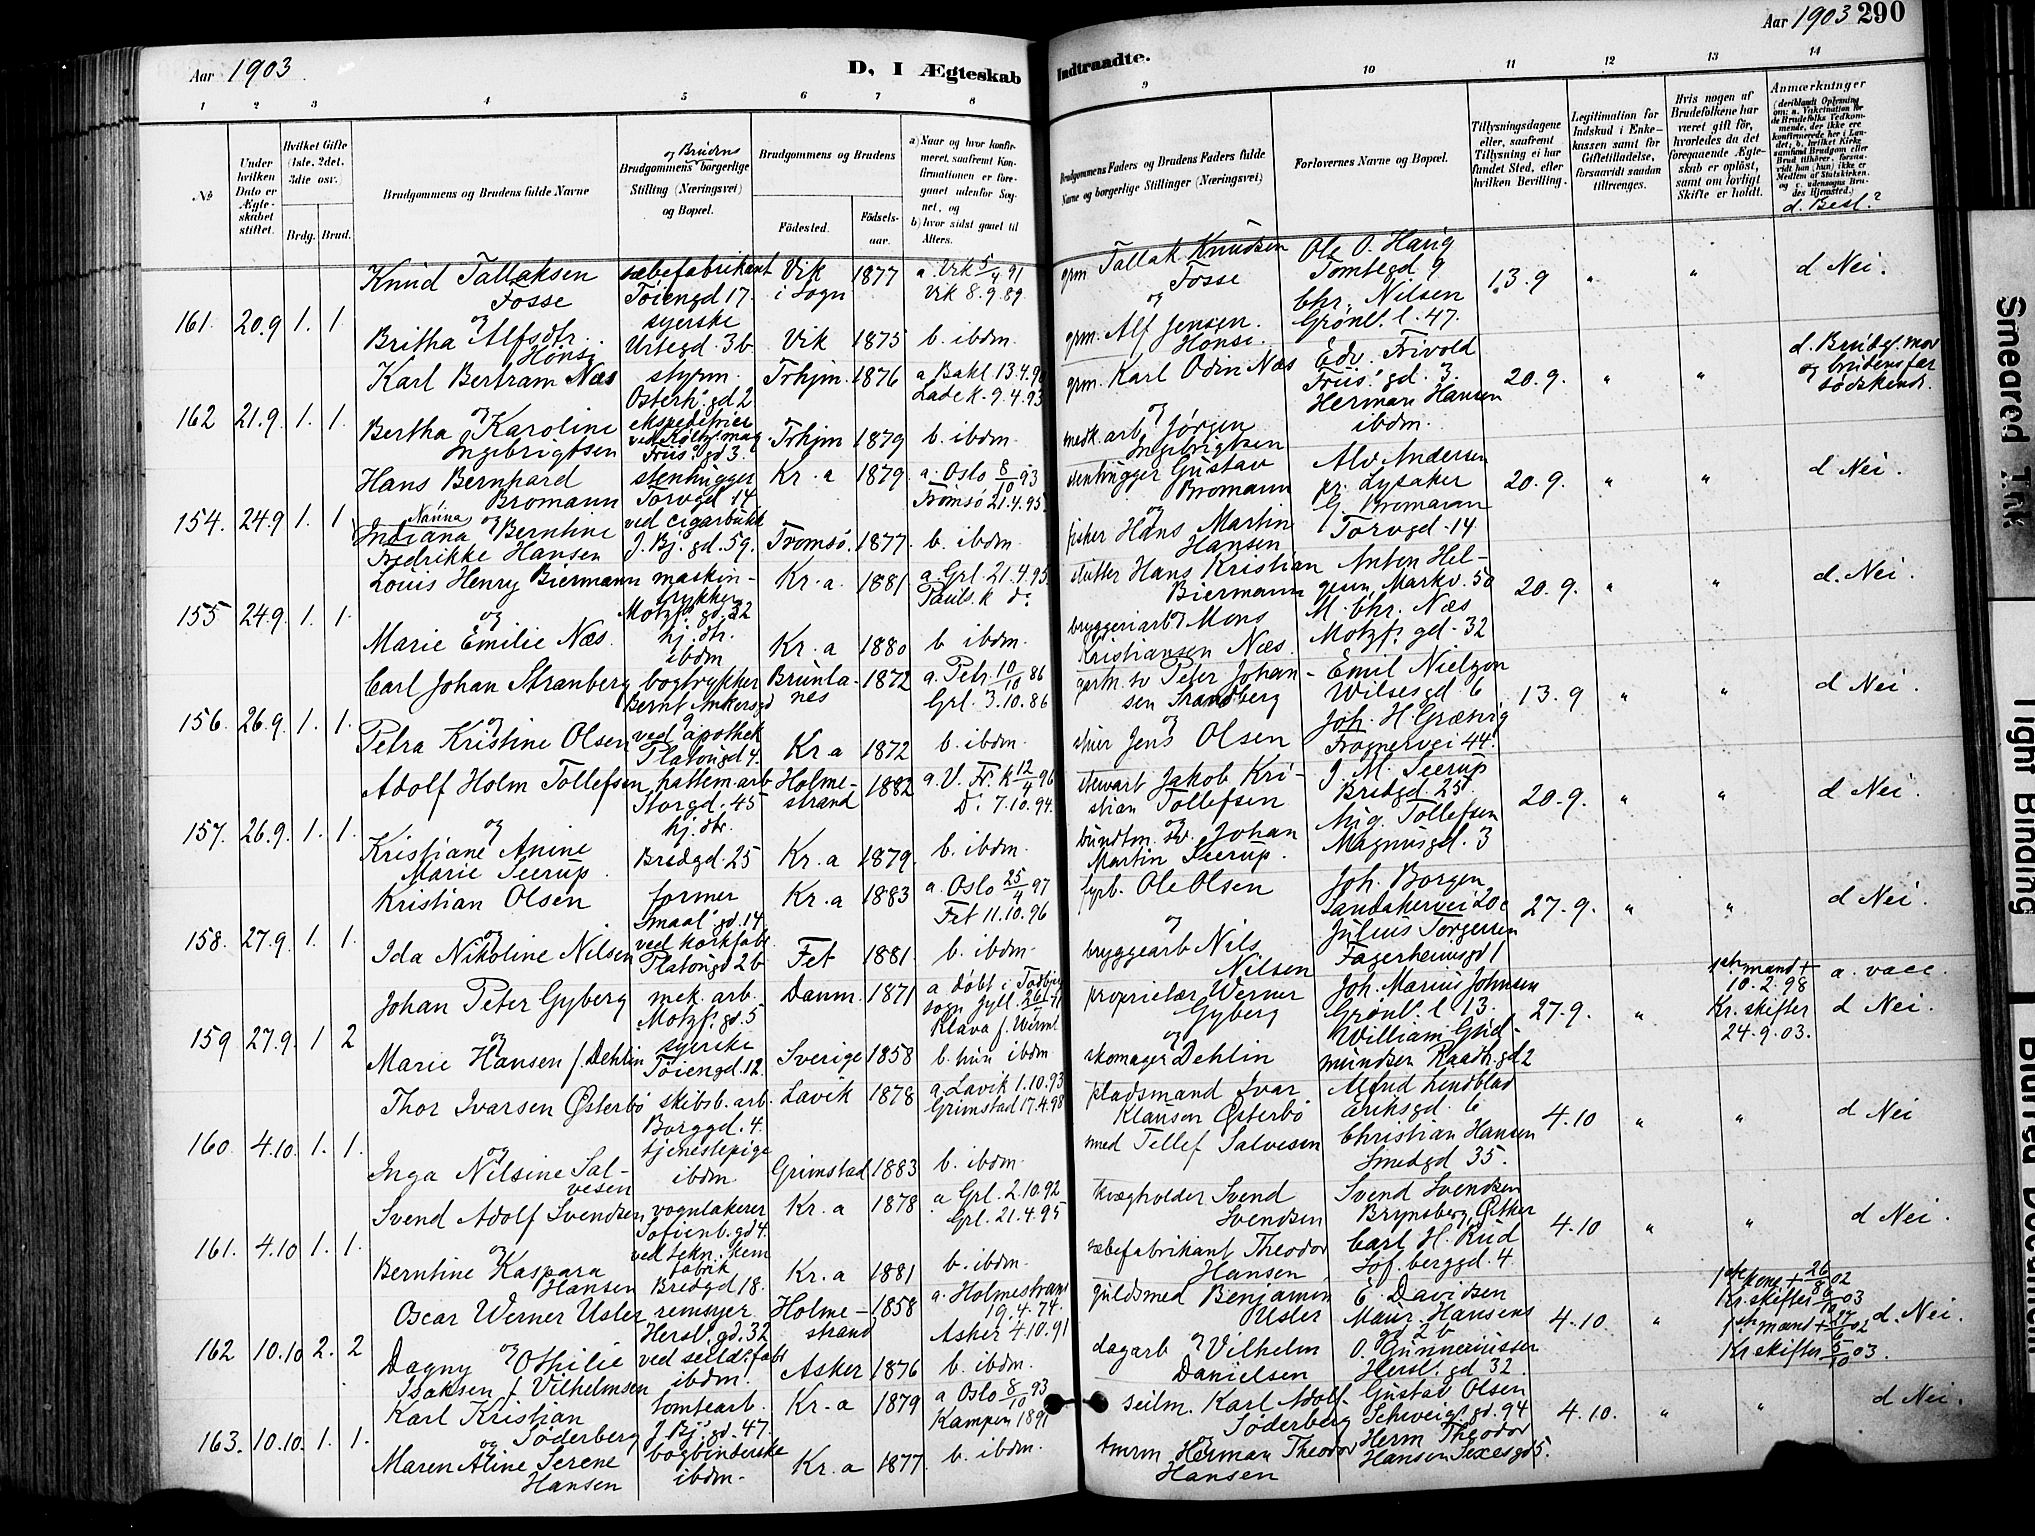 Aar 1903
D, I Ægteskab
Indtraadte.
Aar 1903 290
1 2 3 4 5 6 7 8 9 10 11 12 13 14
No
Under hvilken Dato er Ægteskabet stiftet.
Hvilket Gifte (1ste, 2det, 3die osv.)
Brdg. Brud.
Brudgommens og Brudens fulde Navne
og Brudens
Brudgommens borgerlige Stilling (Næringsvei) og Bopæl.
Brudgommens og Brudens
Fødested.
Fødselsaar.
a) Naar og hvor konfirmeret, saafremt Konfirmationen er foregaaet udenfor Sognet, og
b) hvor sidst gaaet til Alters.
Brudgommens Faders og Brudens Faders fulde Navne og borgerlige Stillinger (Næringsvei)
Forlovernes Navne og Bopæl.
Tillysningsdagene eller, saafremt Tillysning ei har fundet Sted, efter hvilken Bevilling.
Legitimation for Indskud i Enkekassen samt for Giftetilladelse, forsaavidt saadan tiltrænges.
Hvis nogen af Brudefolkene har været gift før, hvorledes da det foregaaende Ægteskab er opløst, samt om lovligt Skifte er holdt.
Anmærkninger
d. Besl.?
161. 20.9 1. 1.
Knud Tallaksen Fosse sæbefabrikant Tøiengd 17. Vik i Sogn 1877 a. Vik 5/4 91 Vik 8.9.89 grm. Tallak Knudsen Fosse Ole O. Haug Tomtegd 9 13.9 " " d Nei.
og
Britha Alfsdtr. Hønsi syerske Urtegd. 3b Vik 1875 b. ibdm. grm. Alf Jensen Hønsi. Chr. Nilsen Grønl. l. 47.
162 21.9. 1. 1.
Karl Bertram Næs styrm. Osterh. gd 2 Trhjm. 1876 a Bakl 13.4.90 Lade k. 9.4.93 grm. Karl Odin Næs Edv. Frivold Friis' gd. 3. 20.9. " " d. Brudg. mor og brudens far sødskende.
og
Bertha Karoline Ingebrigtsen Friis' gd 3. Trhjm 1879 b. ibdm. medk. arb Jørgen Ingebrigtsen Herman Hansen ibdm.
154. 24.9 1. 1
Hans Bernhard Bromann stenhugger Torvgd 14 Kr. a 1879 a. Oslo 8/10 93 Tromsø 21.4.95 stenhugger Gustav Bromann Alv. Andersen pr. Lysaker 20.9. " " d Nei.
Nanna og
Indiana Berntine Fredrikke Hansen ved cigarbutik J. Bj. gd. 59. Tromsø. 1877. b. ibdm fisker Hans Martin Hansen G. Bromann Torvgd. 14
155 24.9. 1. 1.
Louis Henry Biermann maskintrykker Motzf. gd. 32 Kr. a. 1881 a Grl. 21.4.95 Pauls. k do slutter Hans Kristian Biermann Anton Helgesen, Markv. 50 20.9. " " d. Nei.
og
Marie Emilie Næs. hj. dtr. ibdm Kr. a 1880 b ibdm. bryggeriarb Mons Kristiansen Næs. M. Chr. Næs Motzf. gd. 32
156. 26.9. 1. 1.
Carl Johan Stranberg bogtrykker Bernt Ankersgd 9 Brunlanes 1872 a. Petr. 10/10 86 Grl. 3.10.86 Peter Johansen Strandberg Emil Nielson Wilsesgd 6 13.9 " " d Nei.
og
Petra Kristine Olsen ved apothek Platougd 4. Kr. a 1872 b. ibdm. Jens Olsen Joh. H. Græsvig Frognervei 44.
157. 26.9. 1. 1.
Adolf Holm Tollefsen hattem. arb Storgd. 45 Holmestrand 1882 a. V. Fr. k 12/4 96 Do 7.10.94. stewart Jakob Kristian Tollefsen J. M. Seerup Bredgd. 25. 20.9. " " d Nei.
og
Kristiane Anine Marie Seerup. hj. dtr. Bredgd. 25 Kr. a 1879. b. ibdm. bundtm. sv. Johan Martin Seerup. Aug. Tollefsen Magnusgd. 3
158. 27.9. 1. 1.
Kristian Olsen former Smaal. gd. 14 Kr. a 1883 a. Oslo 25/4 97 Fet 11.10.96 fyrb. Ole Olsen Joh. Borgen Sandakervei 20c 27.9. " " d Nei.
og
Ida Nikoline Nilsen ved korkfabr. Platougd 2b Fet 1881. b. ibdm. bryggearb Nils Nilsen Julius Torgersen Fagerheimsgd 1
159 27.9. 1 2
Johan Peter Gyberg mek. arb. Motzf. gd. 5 Danm. 1871 proprietær Werner Gyberg Joh. Marius Johnsen Grønl. l 13. 27.9. " 1ste mand + 10.2.98 Kr. skifter 24.9.03. a. vacc. d Nei.
og
Marie Hansen f. Dehlin syerske Tøiengd. 12. Sverige 1858 b. hun ibdm skomager Dehlin William Gudmundsen Raadh. gd 2
160. 4.10. 1. 1.
Thor Ivarsen Østerbø skibsb. arb. Borggd. 4. Lavik 1878 a. Lavik 1.10.93 Grimstad 17.4.98 pladsmand Ivar Klausen Østerbø Alfred Lindblad Eriksgd. 6 4.10 " " d Nei
og
Inga Nilsine Salvesen tjenestepige ibdm. Grimstad 1883 b. ibdm. Tellef Salvesen Christian Hansen Smedgd 35.
161. 4.10 1. 1.
Svend Adolf Svendsen vognlakerer Sofienb. gd 4. Kr. a 1878 a Grl. 2.10.92 Grl. 21.4.95 kvægholder Svend Svendsen Svend Svendsen Brynsberg, Ø. Aker 4.10 " " d Nei.
og
Berntine Kaspara Hansen ved tekn. kem fabrik Bredgd 18. Kr. a 1881 b. ibdm. sæbefabrikant Theodor Hansen Carl H. Rud Sof. berggd. 4.
162 10.10 2. 2
Oscar Werner Usler remsyer Hersl. gd. 32 Holmestrand 1858 a. Holmestrand 19.4.74. Asker 4.10.91 guldsmed Benjamin Usler E. Davidsen Maur. Hansens gd 2b 4.10. " 1ste kone + 26/8 02 Kr. skifter 6/10 03 d. Nei.
og
Dagny Othilie Isaksen f. Vilhelmsen ibdm. Asker 1876 b. ibdm. dagarb Vilhelm Danielsen O. Gunneriussen Hersl. gd 32. 1ste mand + 27/6 02 Kr skifter 6/10 03.
163. 10.10. 1. 1.
Karl Kristian Søderberg tomtearb. J. Bj. gd. 47. Kr. a 1879 a Oslo 8/10 93 Kampen 1891 seilm. Karl Adolf Søderberg Gustav Olsen Schweig. gd. 94 4.10. " " d Nei.
og
Maren Aline Serene Hansen bogbinderske ibdm. Kr. a 1877. b. ibdm. tmrm Herman Theodor Hansen Herm Theodor Hansen Sexesgd 5.
Smeared Ink
Tight Binding
Blurred Document